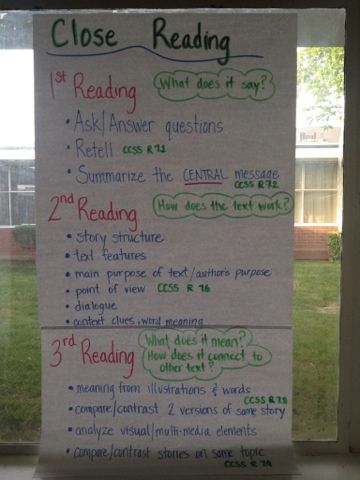 Close Reading
1st Reading
What does it say?
• Ask/Answer questions
• Retell CCSS R 7.1
• Summarize the CENTRAL message
CCSS R 7.2
2nd Reading
How does the text work?
• story structure
• text features
• main purpose of text/author's purpose
• point of view CCSS R 7.6
• dialogue
• context clues, word meaning
3rd Reading
What does it mean?
How does it connect to
other text?
• meaning from illustrations & words
CCSS R 7.8
• compare/contrast 2 versions of same story
• analyze visual/multi-media elements
• compare/contrast stories on same topic
CCSS R 7.9